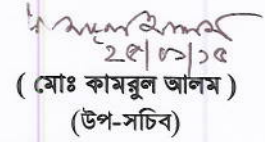 ২৫|০১|১৫
( মোঃ কামরুল আলম )
(উপ-সচিব)